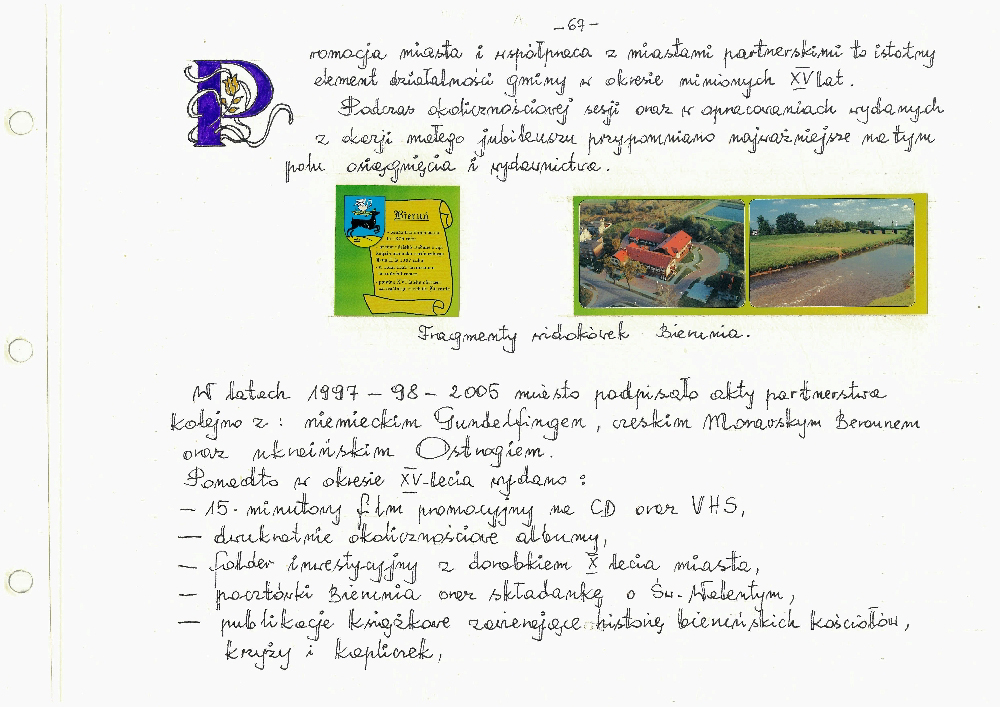 -67-
Promocja miasta i współpraca z miastami partnerskimi to istotny
element działalności gminy w okresie minionych XV lat.
Podczas okolicznościowej sesji oraz w opracowaniach wydanych
z okazji małego jubileuszu przypomniano najważniejsze na tym
polu osiągnięcia i wydawnictwa.
Bieruń
Fragmenty widokówek Bierunia.
W latach 1997 - 98 - 2005 miasto podpisało akty partnerstwa
kolejno z: niemieckim Gundelfingen, czeskim Moravskym Berounem
oraz ukraińskim Ostrogiem.
Ponadto w okresie XV-lecia wydano:
- 15-minutowy film promocyjny na CD oraz VHS,
- dwukrotnie okolicznościowe albumy,
- folder inwestycyjny z dorobkiem X lecia miasta,
- pocztówki Bierunia oraz składankę o Św. Walentym,
- publikacje książkowe zawierające historię bieruńskich kościołów,
krzyży i kapliczek,